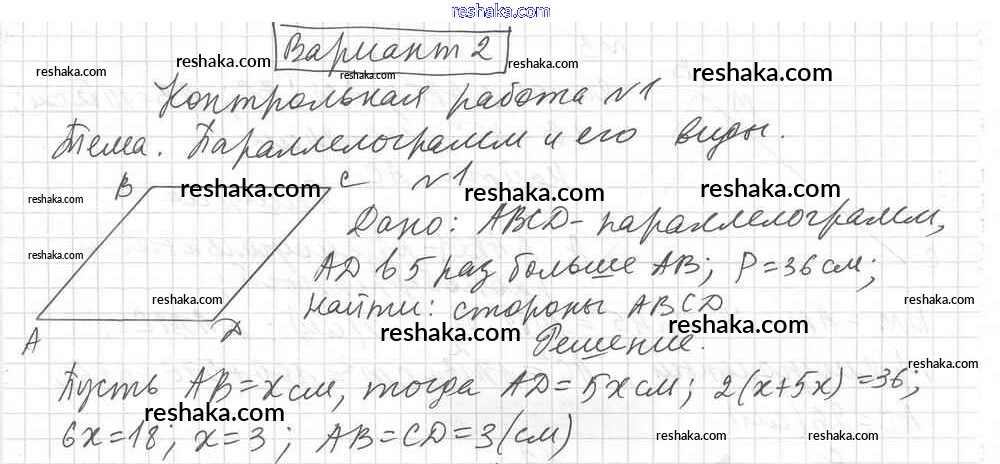 reshaka.com
Вариант 2
reshaka.com reshaka.com reshaka.com reshaka.com
Контрольная работа №1
reshaka.com reshaka.com
Тема. Параллелограмм и его виды.
B C №1
reshaka.com reshaka.com reshaka.com reshaka.com
Дано: ABCD - параллелограмм,
reshaka.com
AD в 5 раз больше AB; P=36 см;
reshaka.com reshaka.com
Найти: стороны ABCD
A D
reshaka.com reshaka.com
Решение.
reshaka.com
Пусть AB=x см, тогда AD=5x см; 2(x+5x)=36;
reshaka.com reshaka.com
6x=18; x=3; AB=CD=3(см)
reshaka.com reshaka.com